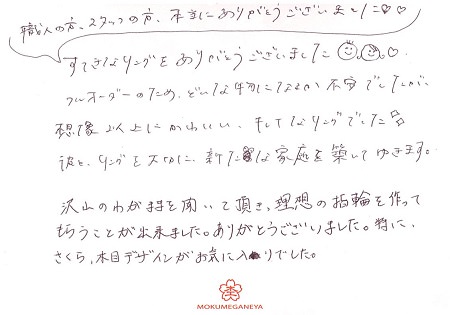 職人の方、スタッフの方、本当にありがとうございました♡♡
すてきなリングをありがとうございました♡
フルオーダーのため、どんな物になるか不安でしたが、
想像以上にかわいい、そしてなリングでした
彼と、リングを大切に、新たな家庭を築いてゆきます。
沢山のわがままを聞いて頂き、理想の指輪を作って
もらうことが出来ました。ありがとうございました。特に、
さくら、木目デザインがお気に入りでした。
MOKUMEGANEYA